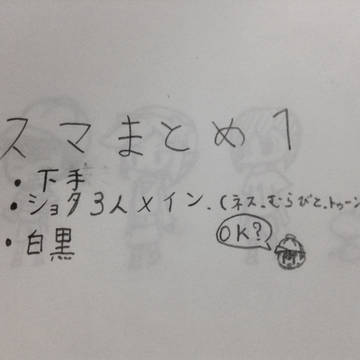 スマまとめ1
・下手
・ショタ3人メイン.(ネス.むらびと.トゥーン
・白黒
OK?